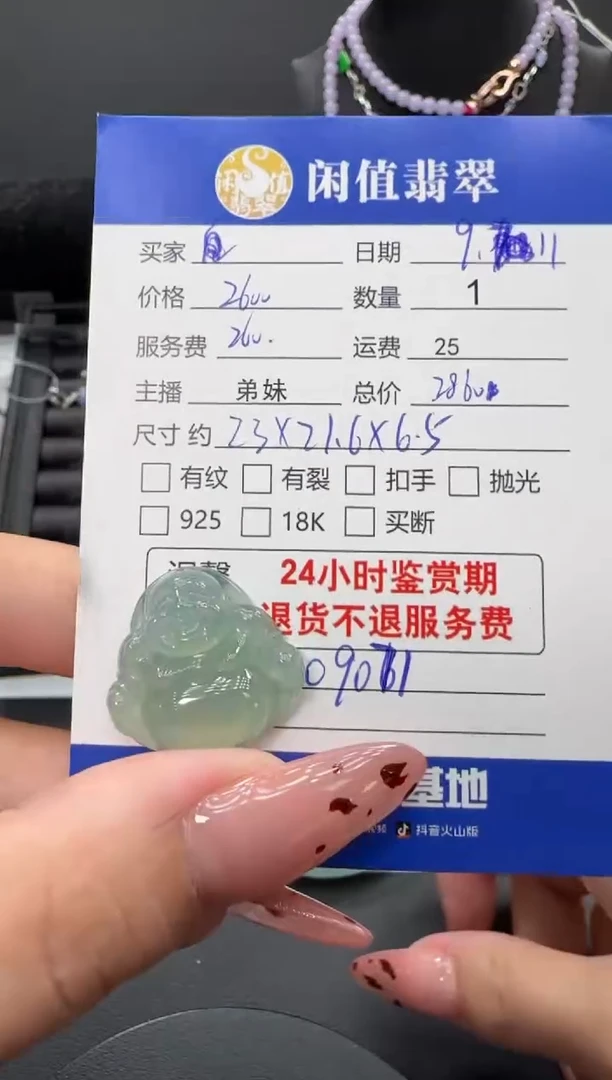 闲值翡翠
闲值翡翠
买家 日期 9. 11
价格 2600 数量 1
服务费 260. 运费 25
主播 弟妹 总价 2860
尺寸 约 23X21.6X6.5
有纹 有裂 扣手 抛光
925 18K 买断
温馨 24小时鉴赏期
退货不退服务费
09011
基地
抖音火山版